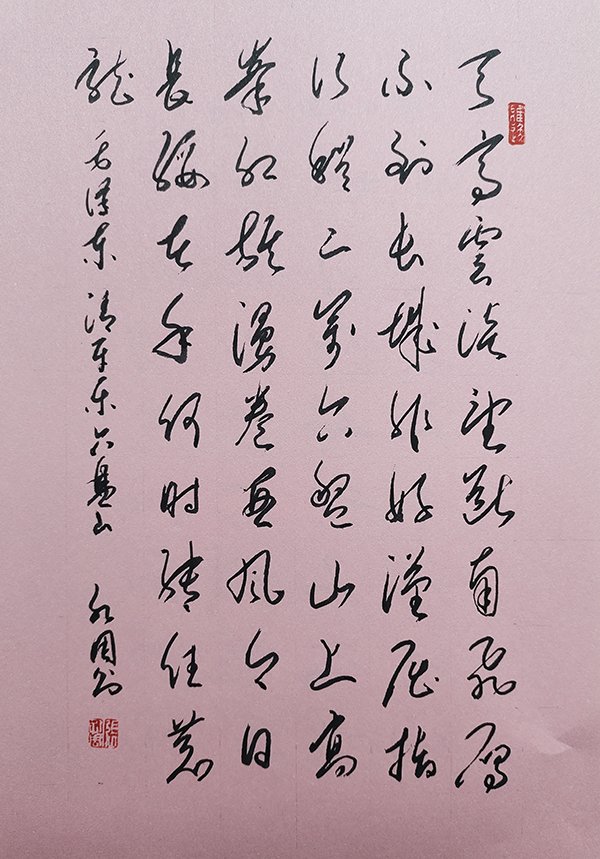 天高雲淡望断南飛雁
不到长城非好漢屈指
行程二萬六盤山上高
峯红旗漫卷西风今日
長缨在手何时缚住苍
龙
毛泽东清平乐六盘山